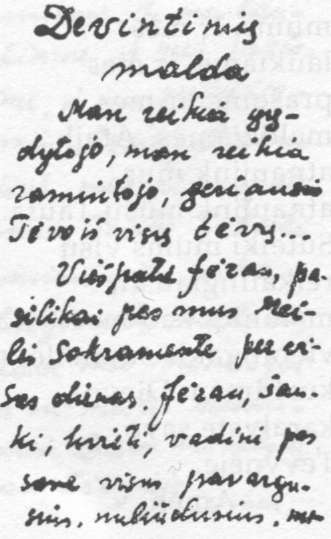 Devintinių
malda
Man reikia gy-
dytojo, man reikia
ramintojo, geriausio
Tėvo iš visų tėvų...
Viešpatie Jėzau, pa-
silikai pas mus Mei-
lės Sakramente per vi-
sas dienas. Jėzau, šau-
ki, kvieti, vadini pas
save visus pavargu-
sius, nuliūdusius,